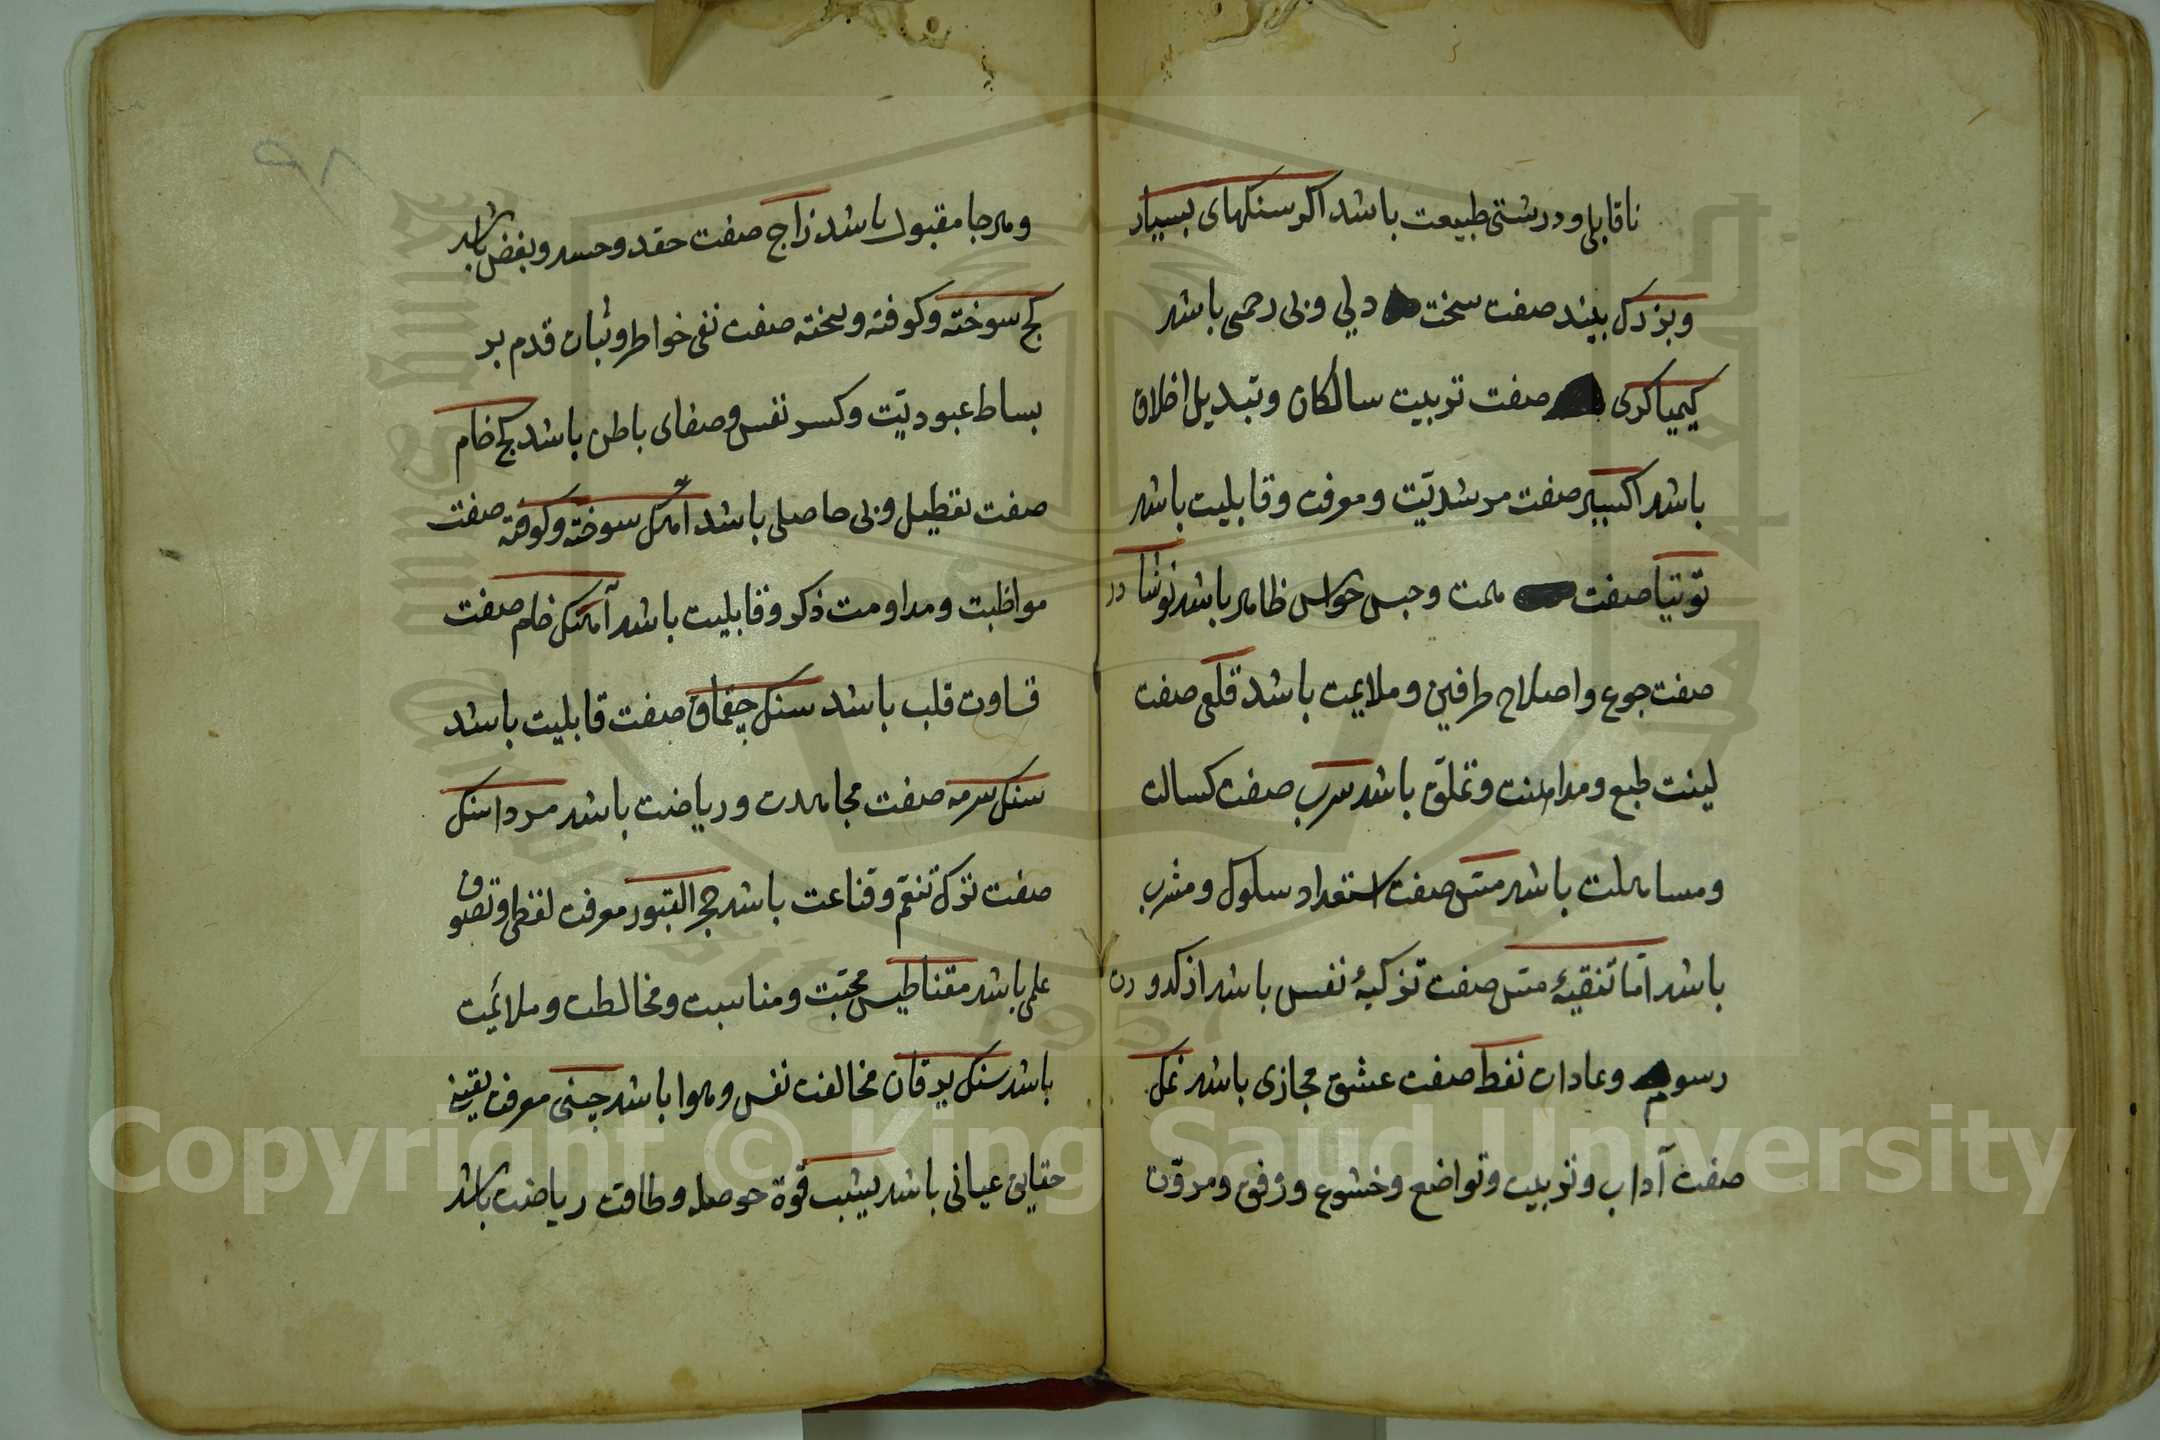 ناقابلی و درشتی طبیعت باشد اکر سنکهای بسیار
و بزرک بیند صفت سخت دلی و بی رحمی باشد
کیمیاکری صفت تربیت سالکان و تبدیل اخلاق
باشد اکسیر صفت مرشدیّت و معرفت و قابلیت باشد
توتیا صفت همت و حبس حواس ظاهر باشد نوشادر
صفت جوع و اصلاح طرفین و ملایمت باشد قلعی صفت
لینت طبع و مداهنت و تملّق باشد سرب صفت کسالت
و مساهلت باشد مس صفت استعداد سلوک و مشرب
باشد امّا تنقیهٔ مس صفت تزکیهٔ نفس باشد از کدورت
رسوم و عادات نفط صفت عشق مجازی باشد نمک
صفت آداب و تربیت و تواضع و خشوع و رفق و مروّت
و هرجا مقبول باشد زاج صفت حقد و حسد و بغض باشد
کج سوخته و کوفته و پخته صفت نفی خواطر و ثبات قدم بر
بساط عبودیّت و کسر نفس و صفای باطن باشد کج خام
صفت تعطیل و بی حاصلی باشد آهک سوخته و کوفته صفت
مواظبت و مداومت ذکر و قابلیت باشد آهک خام صفت
قساوت قلب باشد سنک چقماق صفت قابلیت باشد
سنک سرمه صفت مجاهدت و ریاضت باشد مرداسنک
صفت ترک تنعّم و قناعت باشد حجر القبور معرفت لفظی و تصوف
علمی باشد مقناطیس محبّت و مناسبت و مخالطت و ملایمت
باشد سنک یرقان مخالفت نفس و هوا باشد چینی معرفت یقین
حقایق عیانی باشد یشب قوة حوصله و طاقت ریاضت باشد
Copyright © King Saud University
1957